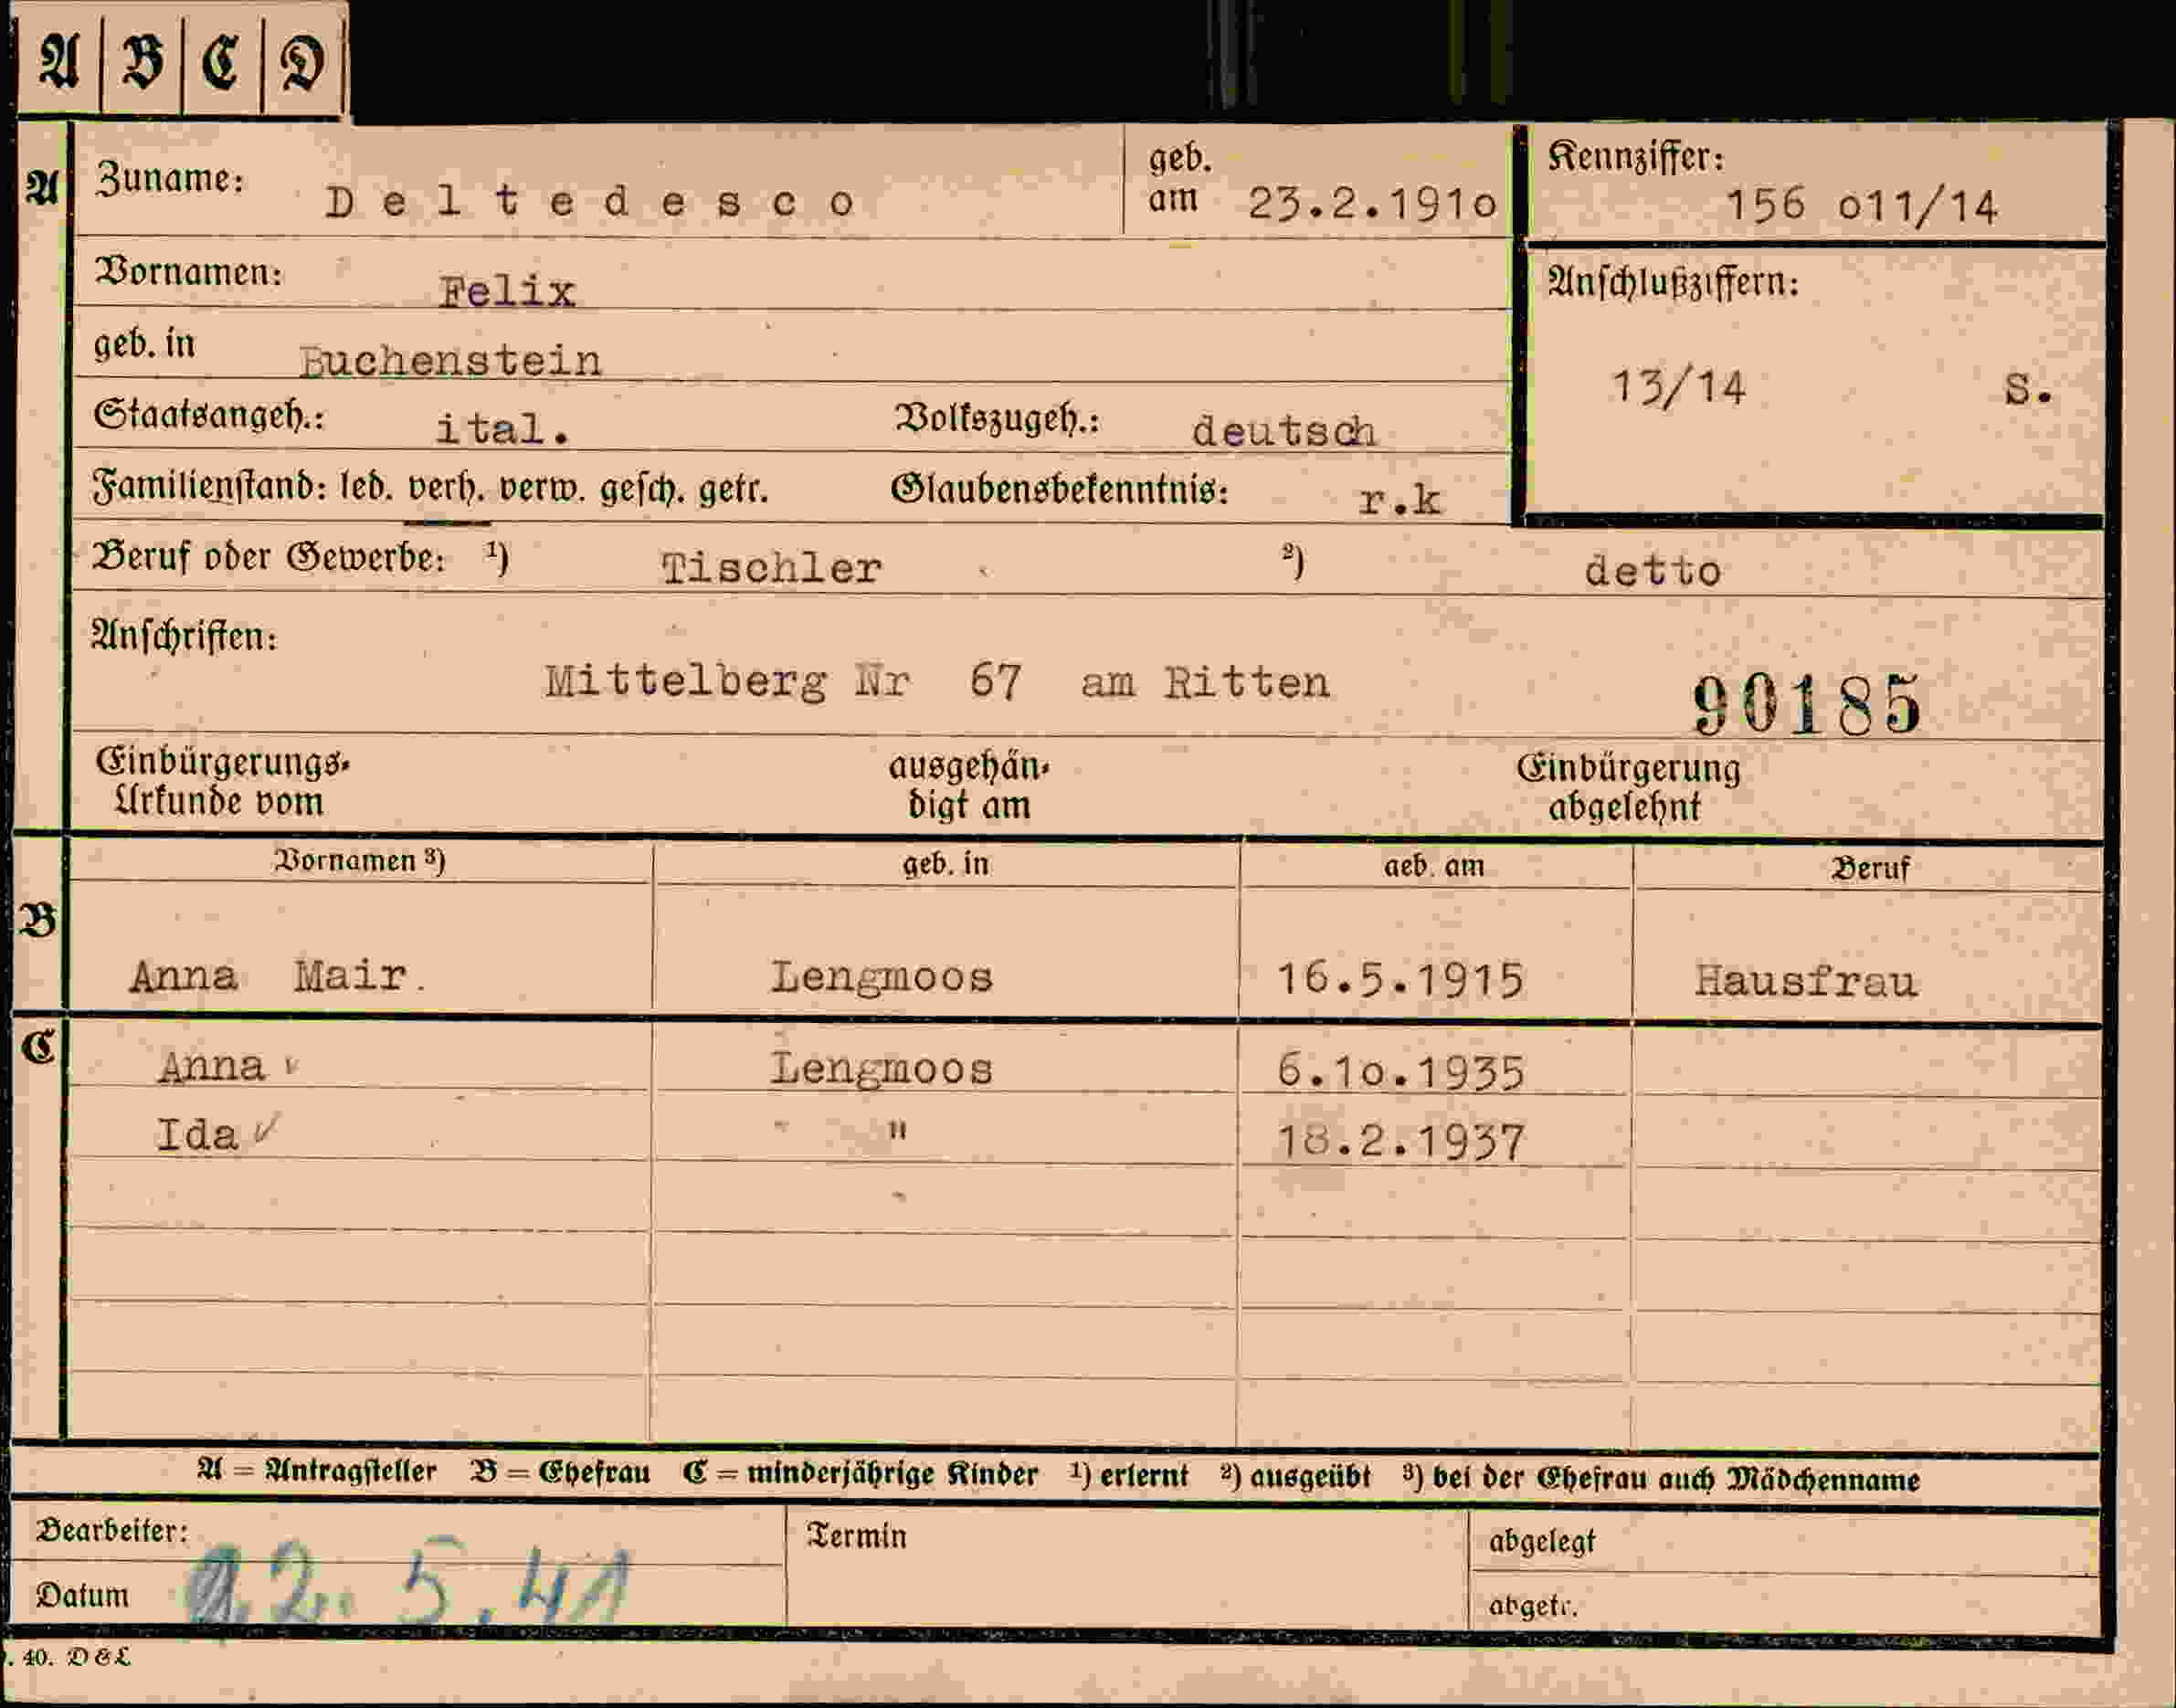 A B C D
A Zuname: Deltedesco geb. am 23.2.191o Kennziffer: 156 o11/14
Vornamen: Felix Anschlußziffern:
geb. in Buchenstein 13/14 S.
Staatsangeh.: ital. Volkszugeh.: deutsch
Familienstand: led. verh. verw. gesch. getr. Glaubensbekenntnis: r.k
Beruf oder Gewerbe: 1) Tischler 2) detto
Anschriften:
Mittelberg Nr 67 am Ritten 90185
Einbürgerungs- ausgehän- Einbürgerung
Urkunde vom digt am abgelehnt
Vornamen 3) geb. in geb. am Beruf
B
Anna Mair. Lengmoos 16.5.1915 Hausfrau
C Anna Lengmoos 6.1o.1935
Ida " 18.2.1937
A = Antragsteller B = Ehefrau C = minderjährige Kinder 1) erlernt 2) ausgeübt 3) bei der Ehefrau auch Mädchenname
Bearbeiter: Termin abgelegt
Datum 5.41 abgetr.
. 40. D & L